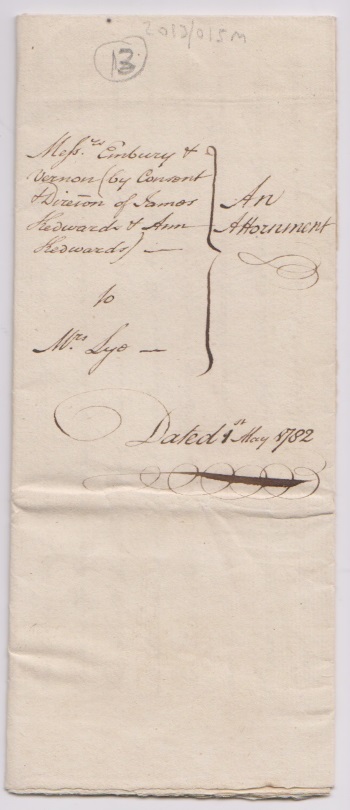 2012/015M
13
Mess.rs Embury &
Vernon (by Consent
& Direc̃on of James
Kedwards & Ann
Kedwards) —
to
Mrs. Lye —
An
Attornment
Dated 1st May 1782